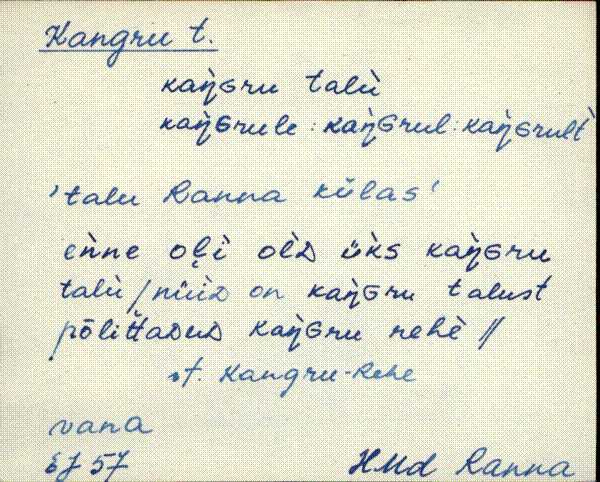 Kangru t.
kaŋ̀ɢru talù
kaŋ̀ɢrule : kaŋ̀ɢrul : kaŋ̀ɢrult̀
'talu Ranna külas'
eǹne oļi̬ olᴅ̀ ük̀s kaŋ̀ɢru
talù / nüiᴅ on kaŋ̀ɢru talust
põlitt̀aᴅuᴅ kaŋ̀ɢru rehè //
vt. Kangru-Rehe
vana
EJ 57
HMd Ranna